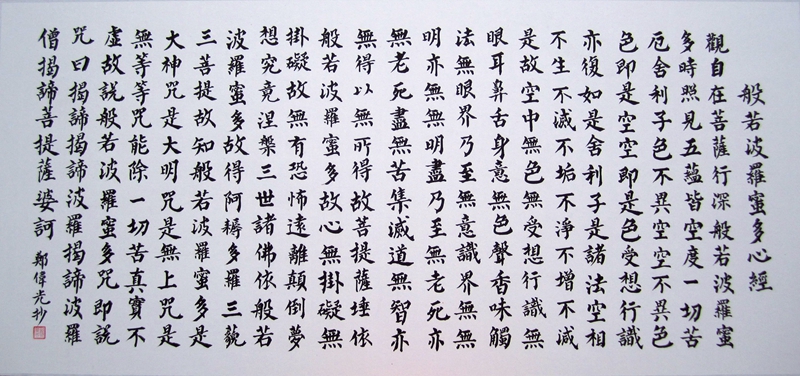 般若波羅蜜多心經
觀自在菩薩行深般若波羅蜜
多時照見五蘊皆空度一切苦
厄舍利子色不異空空不異色
色即是空空即是色受想行識
亦復如是舍利子是諸法空相
不生不滅不垢不淨不增不減
是故空中無色無受想行識無
眼耳鼻舌身意無色聲香味觸
法無眼界乃至無意識界無無
明亦無無明盡乃至無老死亦
無老死盡無苦集滅道無智亦
無得以無所得故菩提薩埵依
般若波羅蜜多故心無掛礙無
掛礙故無有恐怖遠離顛倒夢
想究竟涅槃三世諸佛依般若
波羅蜜多故得阿耨多羅三藐
三菩提故知般若波羅蜜多是
大神咒是大明咒是無上咒是
無等等咒能除一切苦真實不
虛故說般若波羅蜜多咒即說
咒曰揭諦揭諦波羅揭諦波羅
僧揭諦菩提薩婆訶 鄭偉光抄